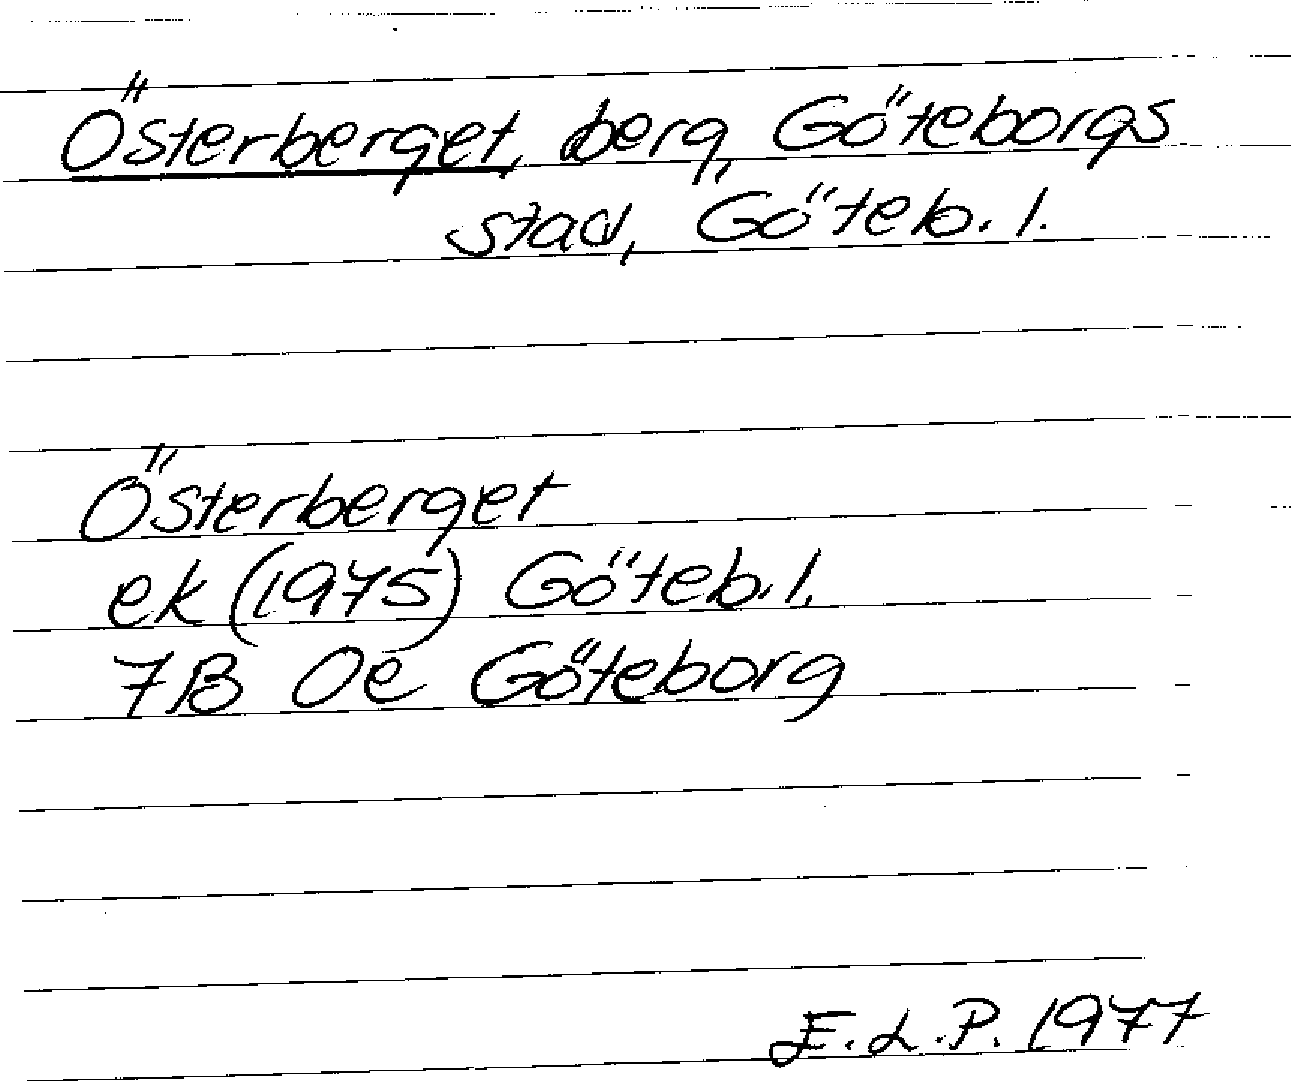 Österberget, berg, Göteborgs
stad, Göteb. l.
Österberget
ek (1975) Göteb. l.
7B Oe Göteborg
E.L.P. 1977